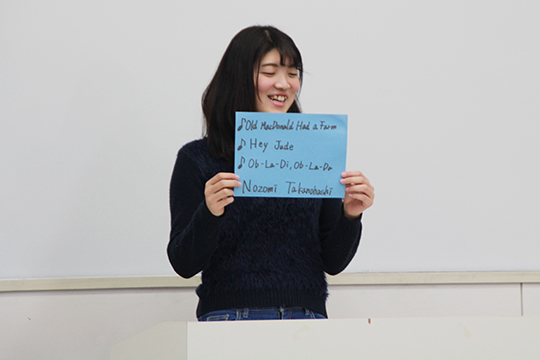 ♪ Old MacDonald Had a Farm
♪ Hey Jude
♪ Ob-La-Di, Ob-La-Da
Nozomi Takanohashi